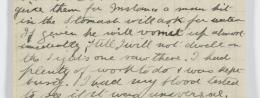 give them for instance a man hit
in the Stomach will ask for water
If given he will vomit up almost
immediately Still I will not dwell on
the sights one saw there, I had
plenty of work to do & was kept
busy. I had my blood tested
to see if it was